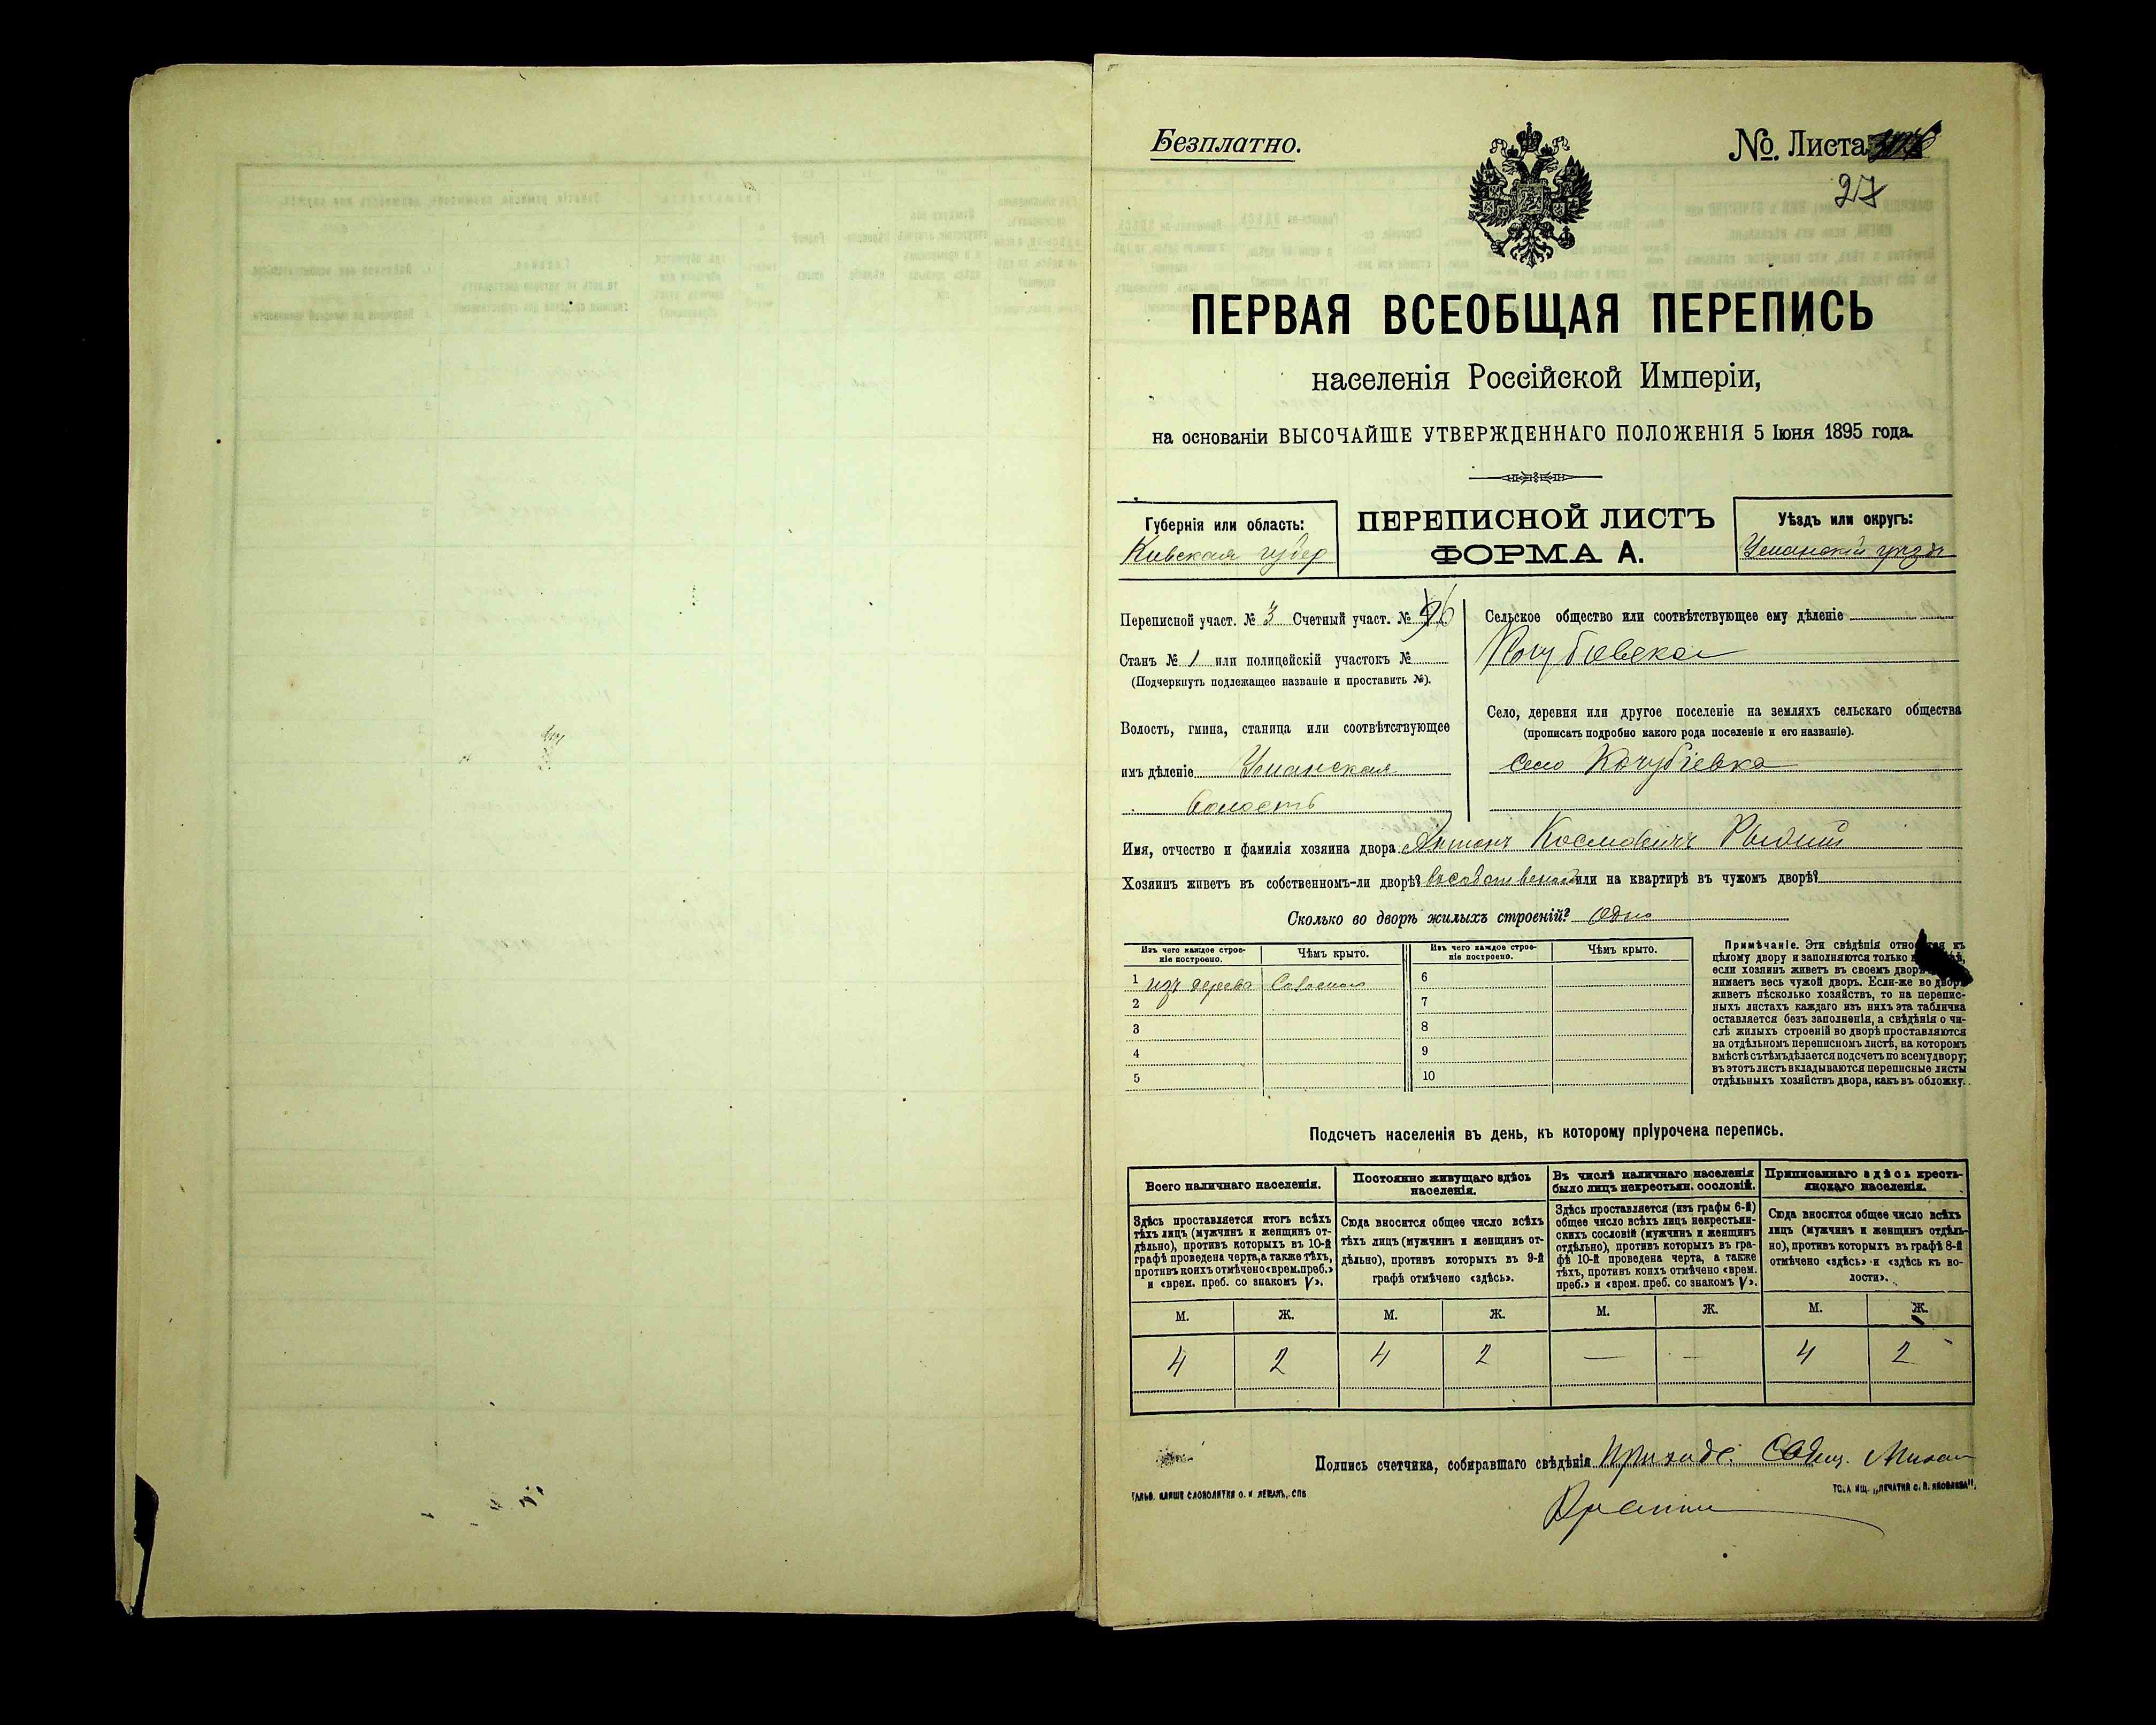 Безплатно.
№. Листа
27
ПЕРВАЯ ВСЕОБЩАЯ ПЕРЕПИСЬ
населенія Россійской Имперіи,
на основаніи ВЫСОЧАЙШЕ УТВЕРЖДЕННАГО ПОЛОЖЕНІЯ 5 Іюня 1895 года.
Губернія или область:
Киевская губер
ПЕРЕПИСНОЙ ЛИСТЪ
ФОРМА А.
Уѣздъ или округъ:
Уманскій уѣздъ
Переписной участ. № 3 Счетный участ. №
Станъ № 1 или полицейскій участокъ №
(Подчеркнуть подлежащее названіе и проставить №).
Волость, гмина, станица или соотвѣтствующее
имъ дѣленіе Уманская
волость
Сельское общество или соотвѣтствующее ему дѣленіе
Село, деревня или другое поселеніе на земляхъ сельскаго общества
(прописать подробно какого рода поселеніе и его названіе).
Село Кочубіевка
Имя, отчество и фамилія хозяина двора Антонъ Космовичъ
Хозяинъ живетъ въ собственномъ-ли дворѣ? или на квартирѣ въ чужомъ дворѣ?
Сколько во дворѣ жилыхъ строеній? Одно
Изъ чего каждое строе-
ніе построено.
Чѣмъ крыто.
Изъ чего каждое строе-
ніе построено.
Чѣмъ крыто.
1 изъ дерева Соломою
2
3
4
5
6
7
8
9
10
Примѣчаніе. Эти свѣдѣнія къ
цѣлому двору и заполняются только
если хозяинъ живетъ въ своемъ
нимаетъ весь чужой дворъ. Если-же во дворѣ
живетъ нѣсколько хозяйствъ, то на перепис-
ныхъ листахъ каждаго изъ нихъ эта табличка
оставляется безъ заполненія, а свѣдѣнія о чи-
слѣ жилыхъ строеній во дворѣ проставляются
на отдѣльномъ переписномъ листѣ, на которомъ
вмѣстѣ съ тѣмъ дѣлается подсчетъ по всему двору;
въ этотъ листъ вкладываются переписные листы
отдѣльныхъ хозяйствъ двора, какъ въ обложку.
Подсчетъ населенія въ день, къ которому пріурочена перепись.
Всего наличнаго населенія.
Постоянно живущаго здѣсь
населенія.
Въ числѣ наличнаго населенія
было лицъ некрестьян. сословій.
Приписаннаго здѣсь кресть-
янскаго населенія.
Здѣсь проставляется итогъ всѣхъ
тѣхъ лицъ (мужчинъ и женщинъ от-
дѣльно), противъ которыхъ въ 10-й
графѣ проведена черта, а также тѣхъ,
противъ коихъ отмѣчено «врем. преб.»
и «врем. преб. со знакомъ V».
Сюда вносится общее число всѣхъ
тѣхъ лицъ (мужчинъ и женщинъ от-
дѣльно), противъ которыхъ въ 9-й
графѣ отмѣчено «здѣсь».
Здѣсь проставляется (изъ графы 6-й)
общее число всѣхъ лицъ некрестьян-
скихъ сословій (мужчинъ и женщинъ
отдѣльно), противъ которыхъ въ гра-
фѣ 10-й проведена черта, а также
тѣхъ, противъ коихъ отмѣчено «врем.
преб.» и «врем. преб. со знакомъ V».
Сюда вносится общее число всѣхъ
лицъ (мужчинъ и женщинъ отдѣль-
но), противъ которыхъ въ графѣ 8-й
отмѣчено «здѣсь» и «здѣсь къ во-
лости».
М. Ж. М. Ж. М. Ж. М. Ж.
4 2 4 2 — — 4 2
Подпись счетчика, собиравшаго свѣдѣнія